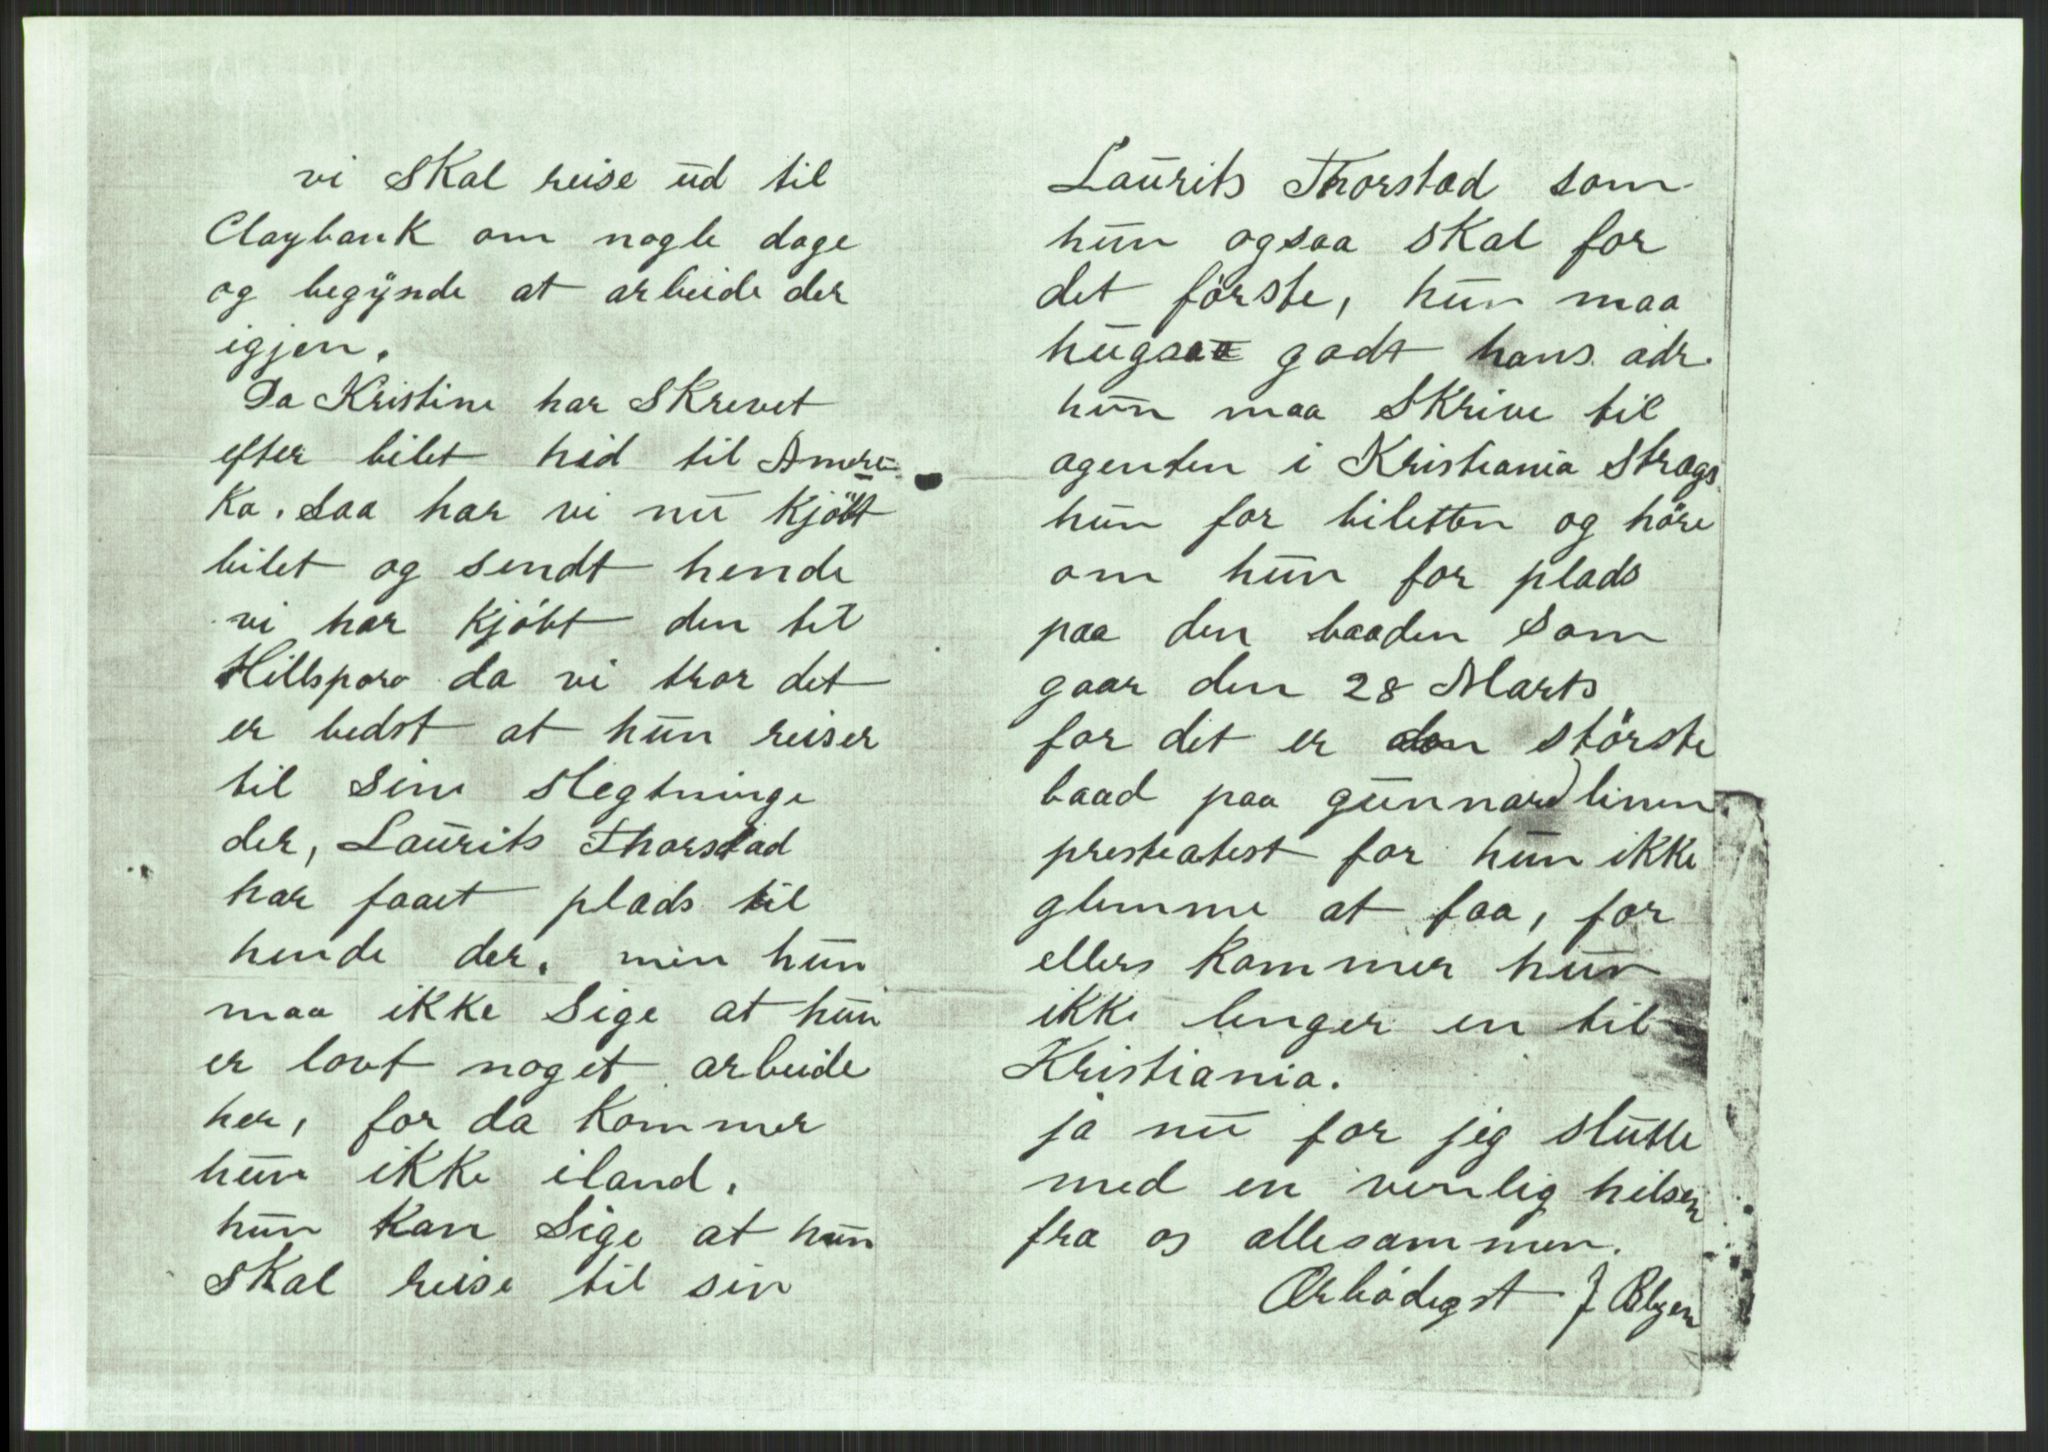 vi skal reise ud til
Claybank om nogle dage
og begynde at arbeide der
igjen.
Da Kristine har skrevet
efter bilet hid til Ameri-
ka. saa har vi nu kjöbt
bilet og sendt hende
vi har kjöbt den til
Hillsporo da vi tror det
er bedst at hun reiser
til sine slegtninge
der, Laurits Thorstad
har faaet plads til
hende der. men hun
maa ikke sige at hun
er lovt noget arbeide
her, for da kommer
hun ikke iland.
hun kan sige at hun
skal reise til sin
Laurits Thorstad som
hun ogsaa skal for
det förste, hun maa
hugse godt hans adr.
hun maa skrive til
agenten i Kristiania strags
hun for biletten og höre
om hun for plads
paa den baaden som
gaar den 28 Marts
for det er den störste
baad paa gunnard linien.
presteatest for hun ikke
glemme at faa, for
ellers kommer hun
ikke lenger en til
Kristiania.
ja nu for jeg slutte
med en venlig hilsen
fra os allesammen.
Ærbödigst J Blyen